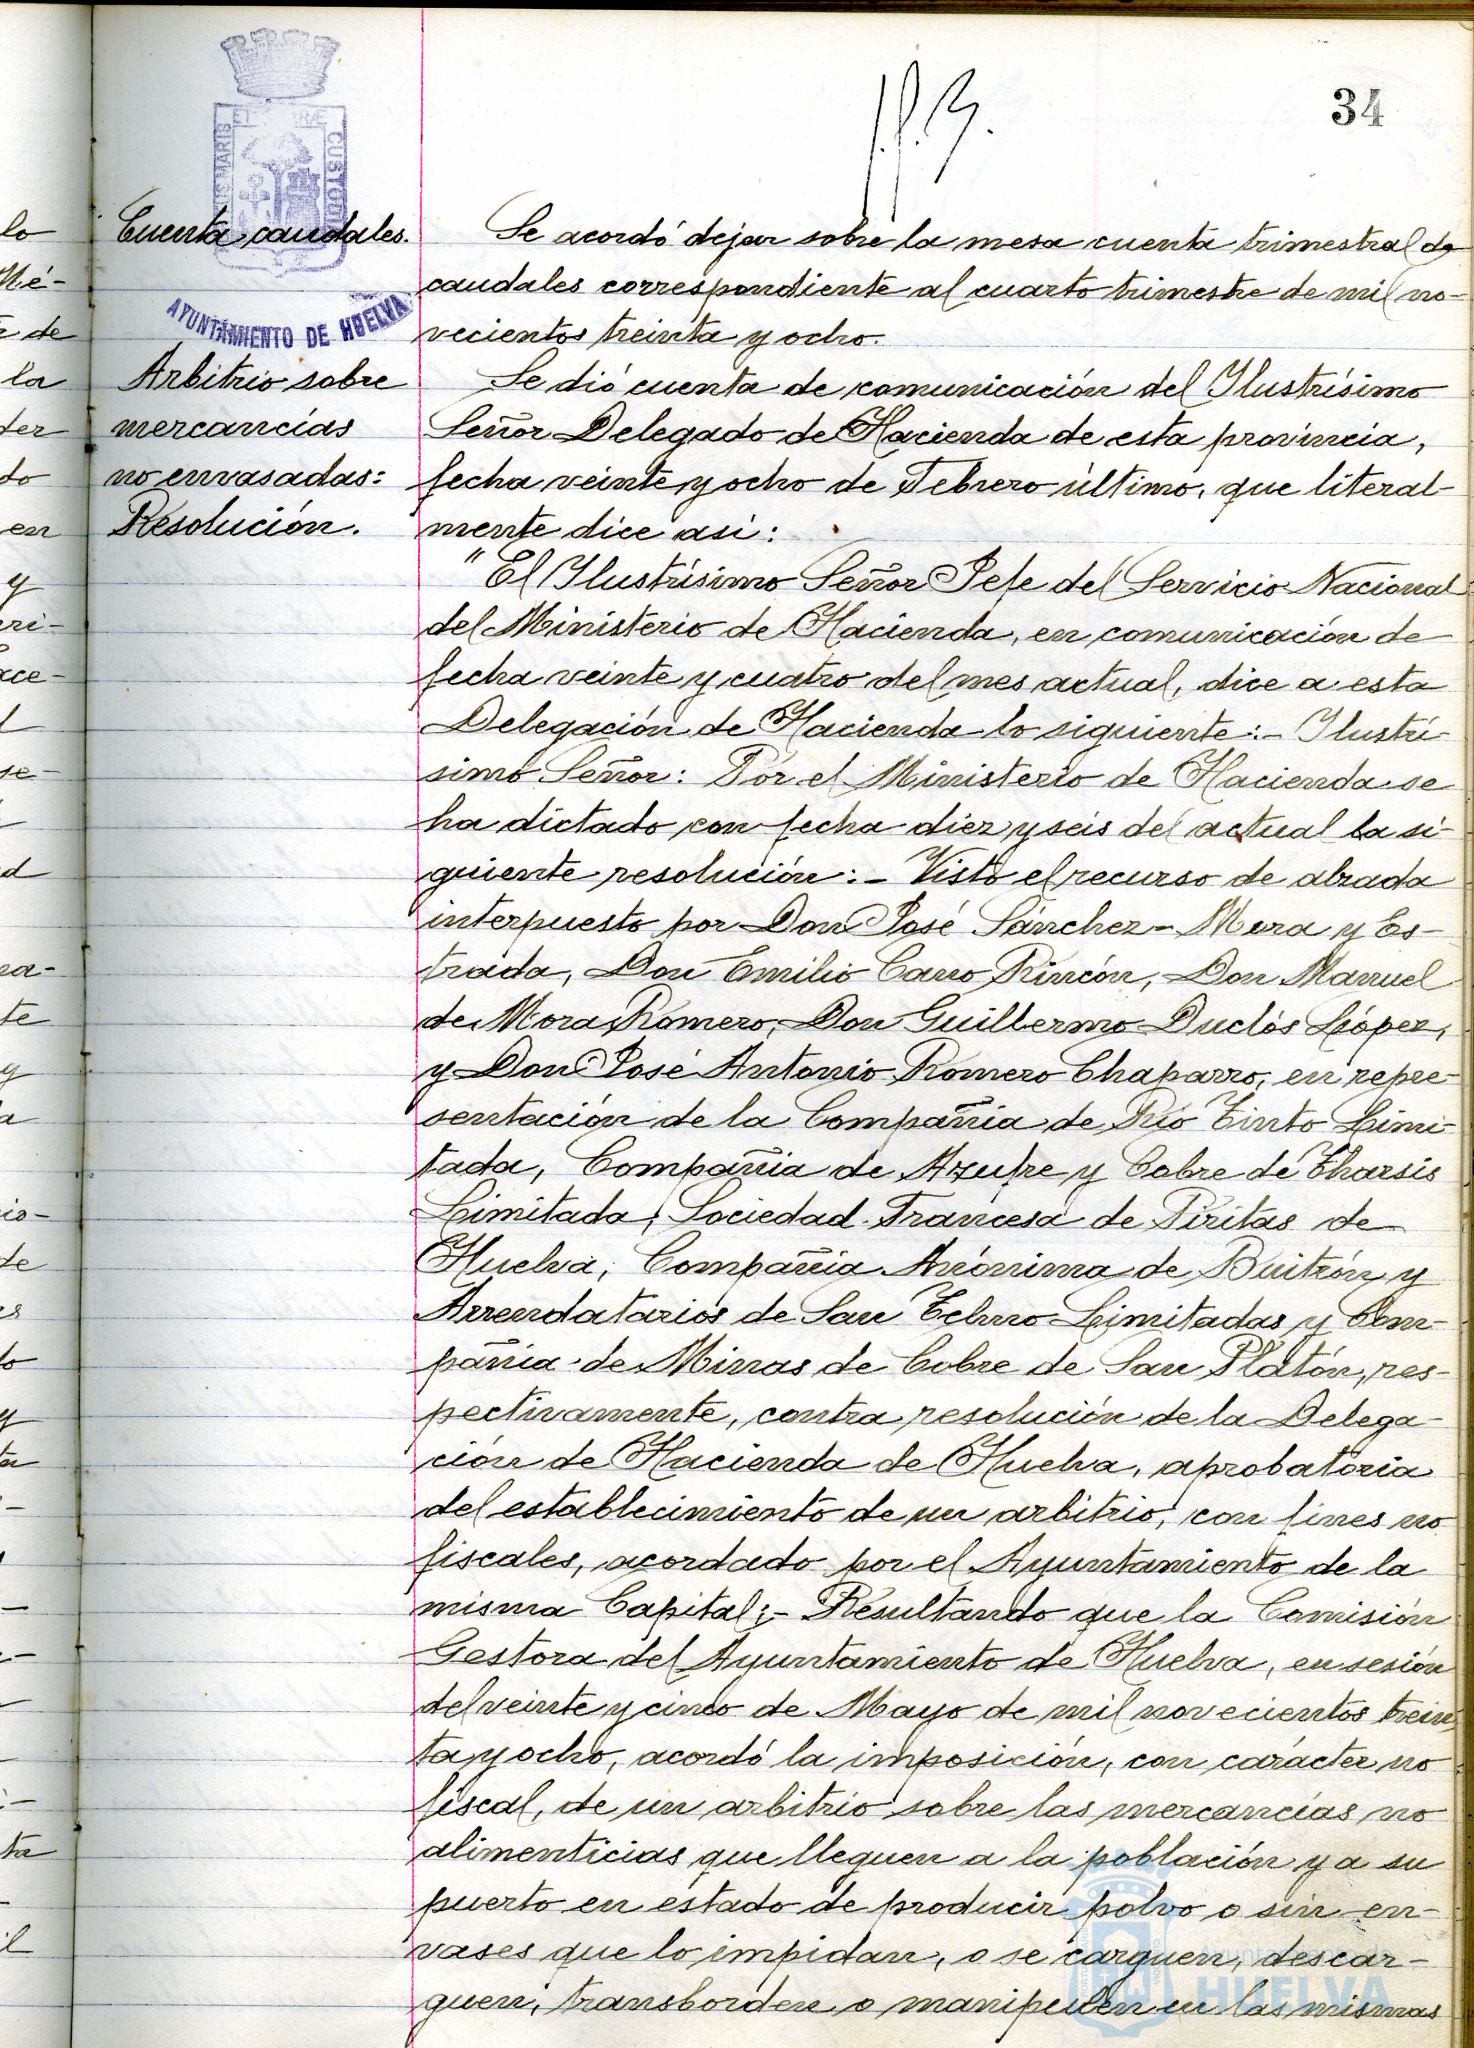 34
PORTUS MARIS ET TERRÆ CUSTODIA
AYUNTAMIENTO DE HUELVA
Cuenta caudales.
Se acordó dejar sobre la mesa cuenta trimestral de
caudales correspondiente al cuarto trimestre de mil no-
vecientos treinta y ocho.
Arbitrio sobre
mercancías
no envasadas:
Resolución.
Se dió cuenta de comunicación del Ilustrísimo
Señor Delegado de Hacienda de esta provincia,
fecha veinte y ocho de Febrero último, que literal-
mente dice asi:
"El Ilustrísimo Señor Jefe del Servicio Nacional
del Ministerio de Hacienda, en comunicación de
fecha veinte y cuatro del mes actual, dice a esta
Delegación de Hacienda lo siguiente:- Ilustrí-
simo Señor: Por el Ministerio de Hacienda se
ha dictado con fecha diez y seis del actual la si-
guiente resolución:- Visto el recurso de alzada
interpuesto por Don José Sánchez-Mora y Es-
trada, Don Emilio Cano Rincón, Don Manuel
de Mora Romero, Don Guillermo Duclós López,
y Don José Antonio Romero Chaparro, en repre-
sentación de la Compañia de Rio Tinto Limi-
tada, Compañia de Azufre y Cobre de Tharsis
Limitada, Sociedad Francesa de Piritas de
Huelva, Compañia Anónima de Buitrón y
Arrendatarios de San Telmo Limitadas y Com-
pañia de Minas de Cobre de San Platón, res-
pectivamente, contra resolución de la Delega-
ción de Hacienda de Huelva, aprobatoria
del establecimiento de un arbitrio, con fines no
fiscales, acordado por el Ayuntamiento de la
misma Capital;- Resultando que la Comisión
Gestora del Ayuntamiento de Huelva, en sesión
del veinte y cinco de Mayo de mil novecientos trein
ta y ocho, acordó la imposición, con carácter no
fiscal, de un arbitrio sobre las mercancías no
alimenticias que lleguen a la población y a su
puerto en estado de producir polvo o sin en-
vases que lo impidan, o se carguen, descar-
guen, transborden o manipulen en las mismas
Ayuntamiento de
HUELVA